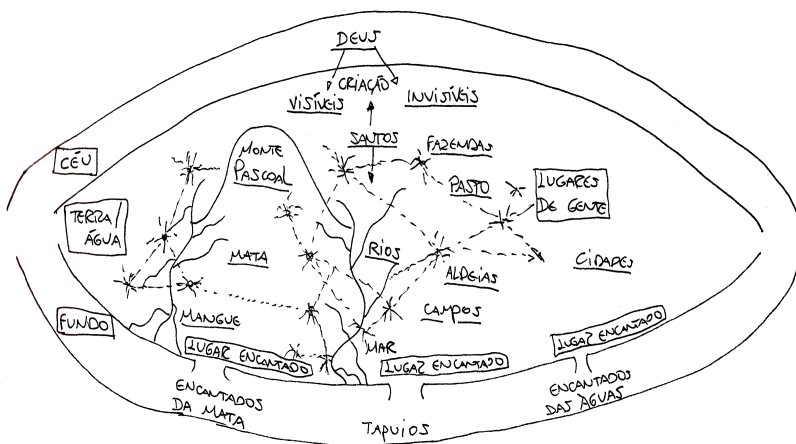 DEUS
CRIAÇÃO
VISÍVEIS
INVISÍVEIS
SANTOS
MONTE
PASCOAL
FAZENDAS
PASTO
CÉU
LUGARES
DE GENTE
TERRA/
ÁGUA
MATA
RIOS
ALDEIAS
CIDADES
CAMPOS
FUNDO
MANGUE
MAR
LUGAR ENCANTADO
LUGAR ENCANTADO
LUGAR ENCANTADO
ENCANTADOS
DA MATA
TAPUIOS
ENCANTADOS
DAS ÁGUAS